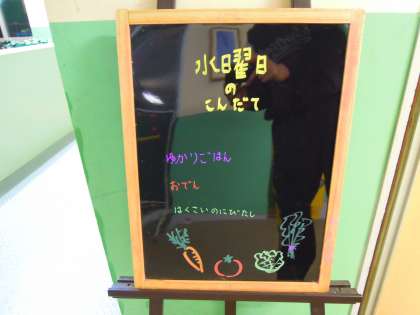 水曜日
の
こんだて
ゆかりごはん
おでん
はくさいのにびたし